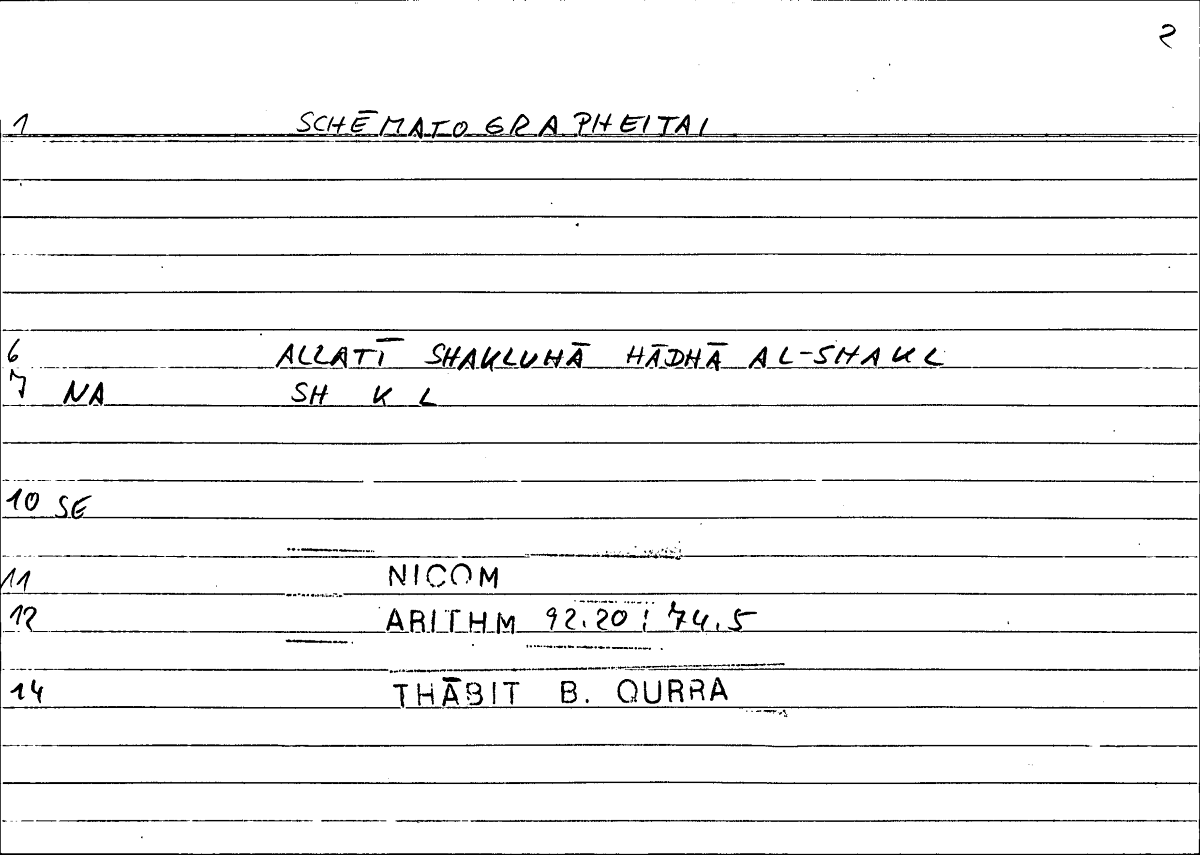 2
1 SCHĒMATOGRAPHEITAI
6 ALLATĪ SHAKLUHĀ HĀDHĀ AL-SHAKL
7 NA SH K L
10 SE
11 NICOM
12 ARITHM 92.20 : 74.5
14 THĀBIT B. QURRA